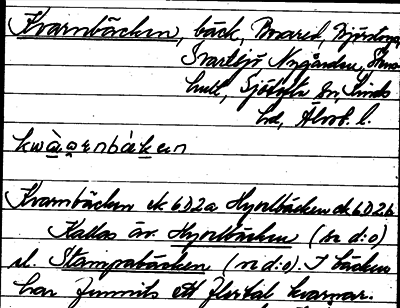 Kvarnbäcken, bäck, Boared, Björstorp,
Svartsjö Nygården, Sten-
hult, Sjötofta sn, Kinds
hd, Älvsb. l.
kwàrnbäken
Kvarnbäcken ek 6D2a Hyvelbäcken ek 6D2b
Kallas äv. Hyvelbäcken (se d:o)
el. Stampabäcken (se d:o). I bäcken
har funnits ett flertal kvarnar.